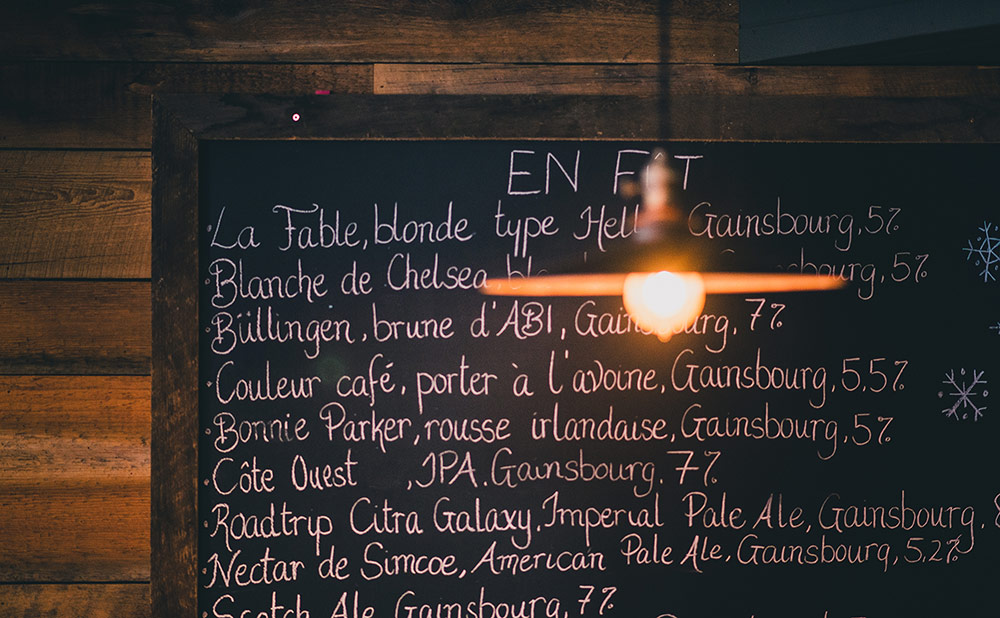 EN FÛT
· La Fable, blonde type Hell Gainsbourg, 5%
· Blanche de Chelsea, 5%
· Büllingen, brune d'ABI, Gainsbourg, 7%
· Couleur café, porter à l'avoine, Gainsbourg, 5,5%
· Bonnie Parker, rousse irlandaise, Gainsbourg, 5%
· Côte Ouest , IPA. Gainsbourg. 7%
· Roadtrip Citra Galaxy, Imperial Pale Ale, Gainsbourg,
· Nectar de Simcoe, American Pale Ale, Gainsbourg, 5.2%
· Scotch Ale, Gainsbourg, 7%